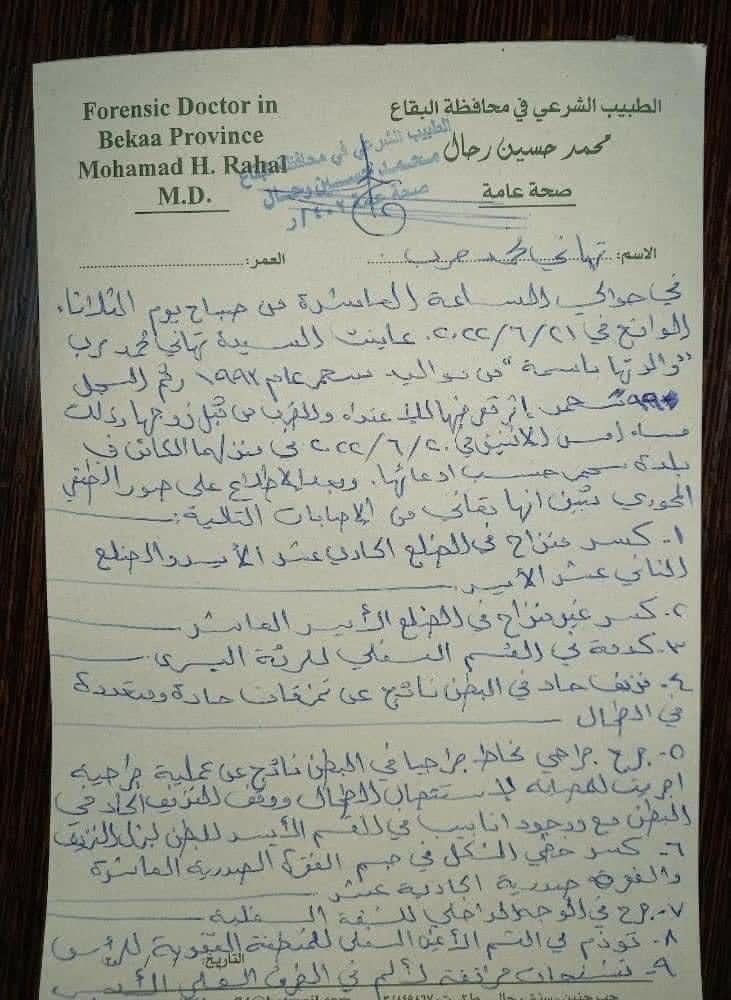 Forensic Doctor in
Bekaa Province
Mohamad H. Rahal
M.D.
الطبيب الشرعي في محافظة البقاع
محمد حسين رحال
صحة عامة
الطبيب الشرعي في محافظة البقاع
محمد حسين رحال
صحة عامة
الاسم: تهاني محمد حرب
العمر:
في حوالي الساعة العاشرة من صباح يوم الثلاثاء
الواقع في ٢٠٢٢/٦/٢١ عاينت السيدة تهاني محمد حرب
"والدتها باسمة" من مواليد عام ١٩٩٢ رقم السجل
إثر تعرضها للاعتداء والضرب من قبل زوجها وذلك
مساء امس الاثنين في ٢٠٢٢/٦/٢٠ في منزلهما الكائن في
بلدة حسب ادعائها. وبعد الاطلاع على صور الطبقي
المحوري تبين انها تعاني من الإصابات التالية:
١- كسر منزاح في الضلع الحادي عشر الأيسر والضلع
الثاني عشر الأيسر
٢- كسر غير منزاح في الضلع الأيسر العاشر
٣- كدمة في القسم السفلي للرئة اليسرى
٤- نزيف حاد في البطن ناتج عن تمزقات حادة ومتعددة
في الطحال
٥- جرح جراحي مخاط جراحيا في البطن ناتج عن عملية جراحية
اجريت لاستئصال الطحال ووقف النزيف الحاد في
البطن مع وجود انابيب في القسم الأيسر للبطن النزيف
٦- كسر خطي الشكل في جسم الفقرة الصدرية العاشرة
والفقرة صدرية الحادية عشر
٧- جرح في الوجه الداخلي للشفة السفلية
٨- تورم في القسم الأيمن السفلي للمنطقة للرأس
التاريخ:
٩- تشنجات مرافقة لألم في الطرف السفلي